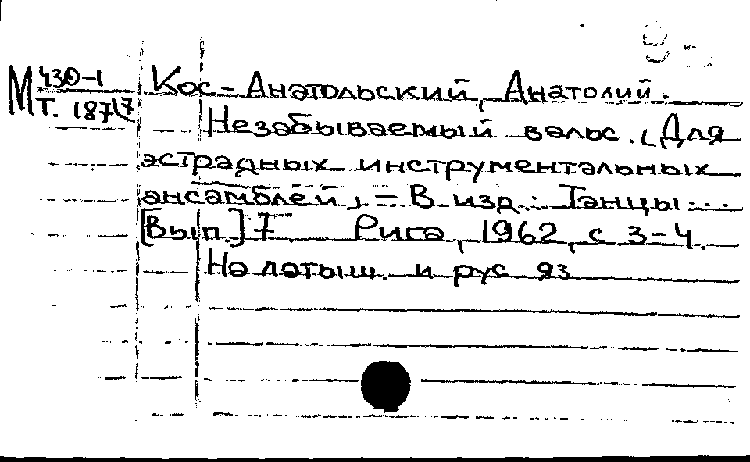 М 430-1
Т. 187/7
Кос-Анатольский, Анатолий.
Незабываемый вальс. (Для
эстрадных инструментальных
ансамблей) = В изд.: Танцы...
[Вып.] 7 Рига, 1962, с 3-4.
На латыш. и рус яз